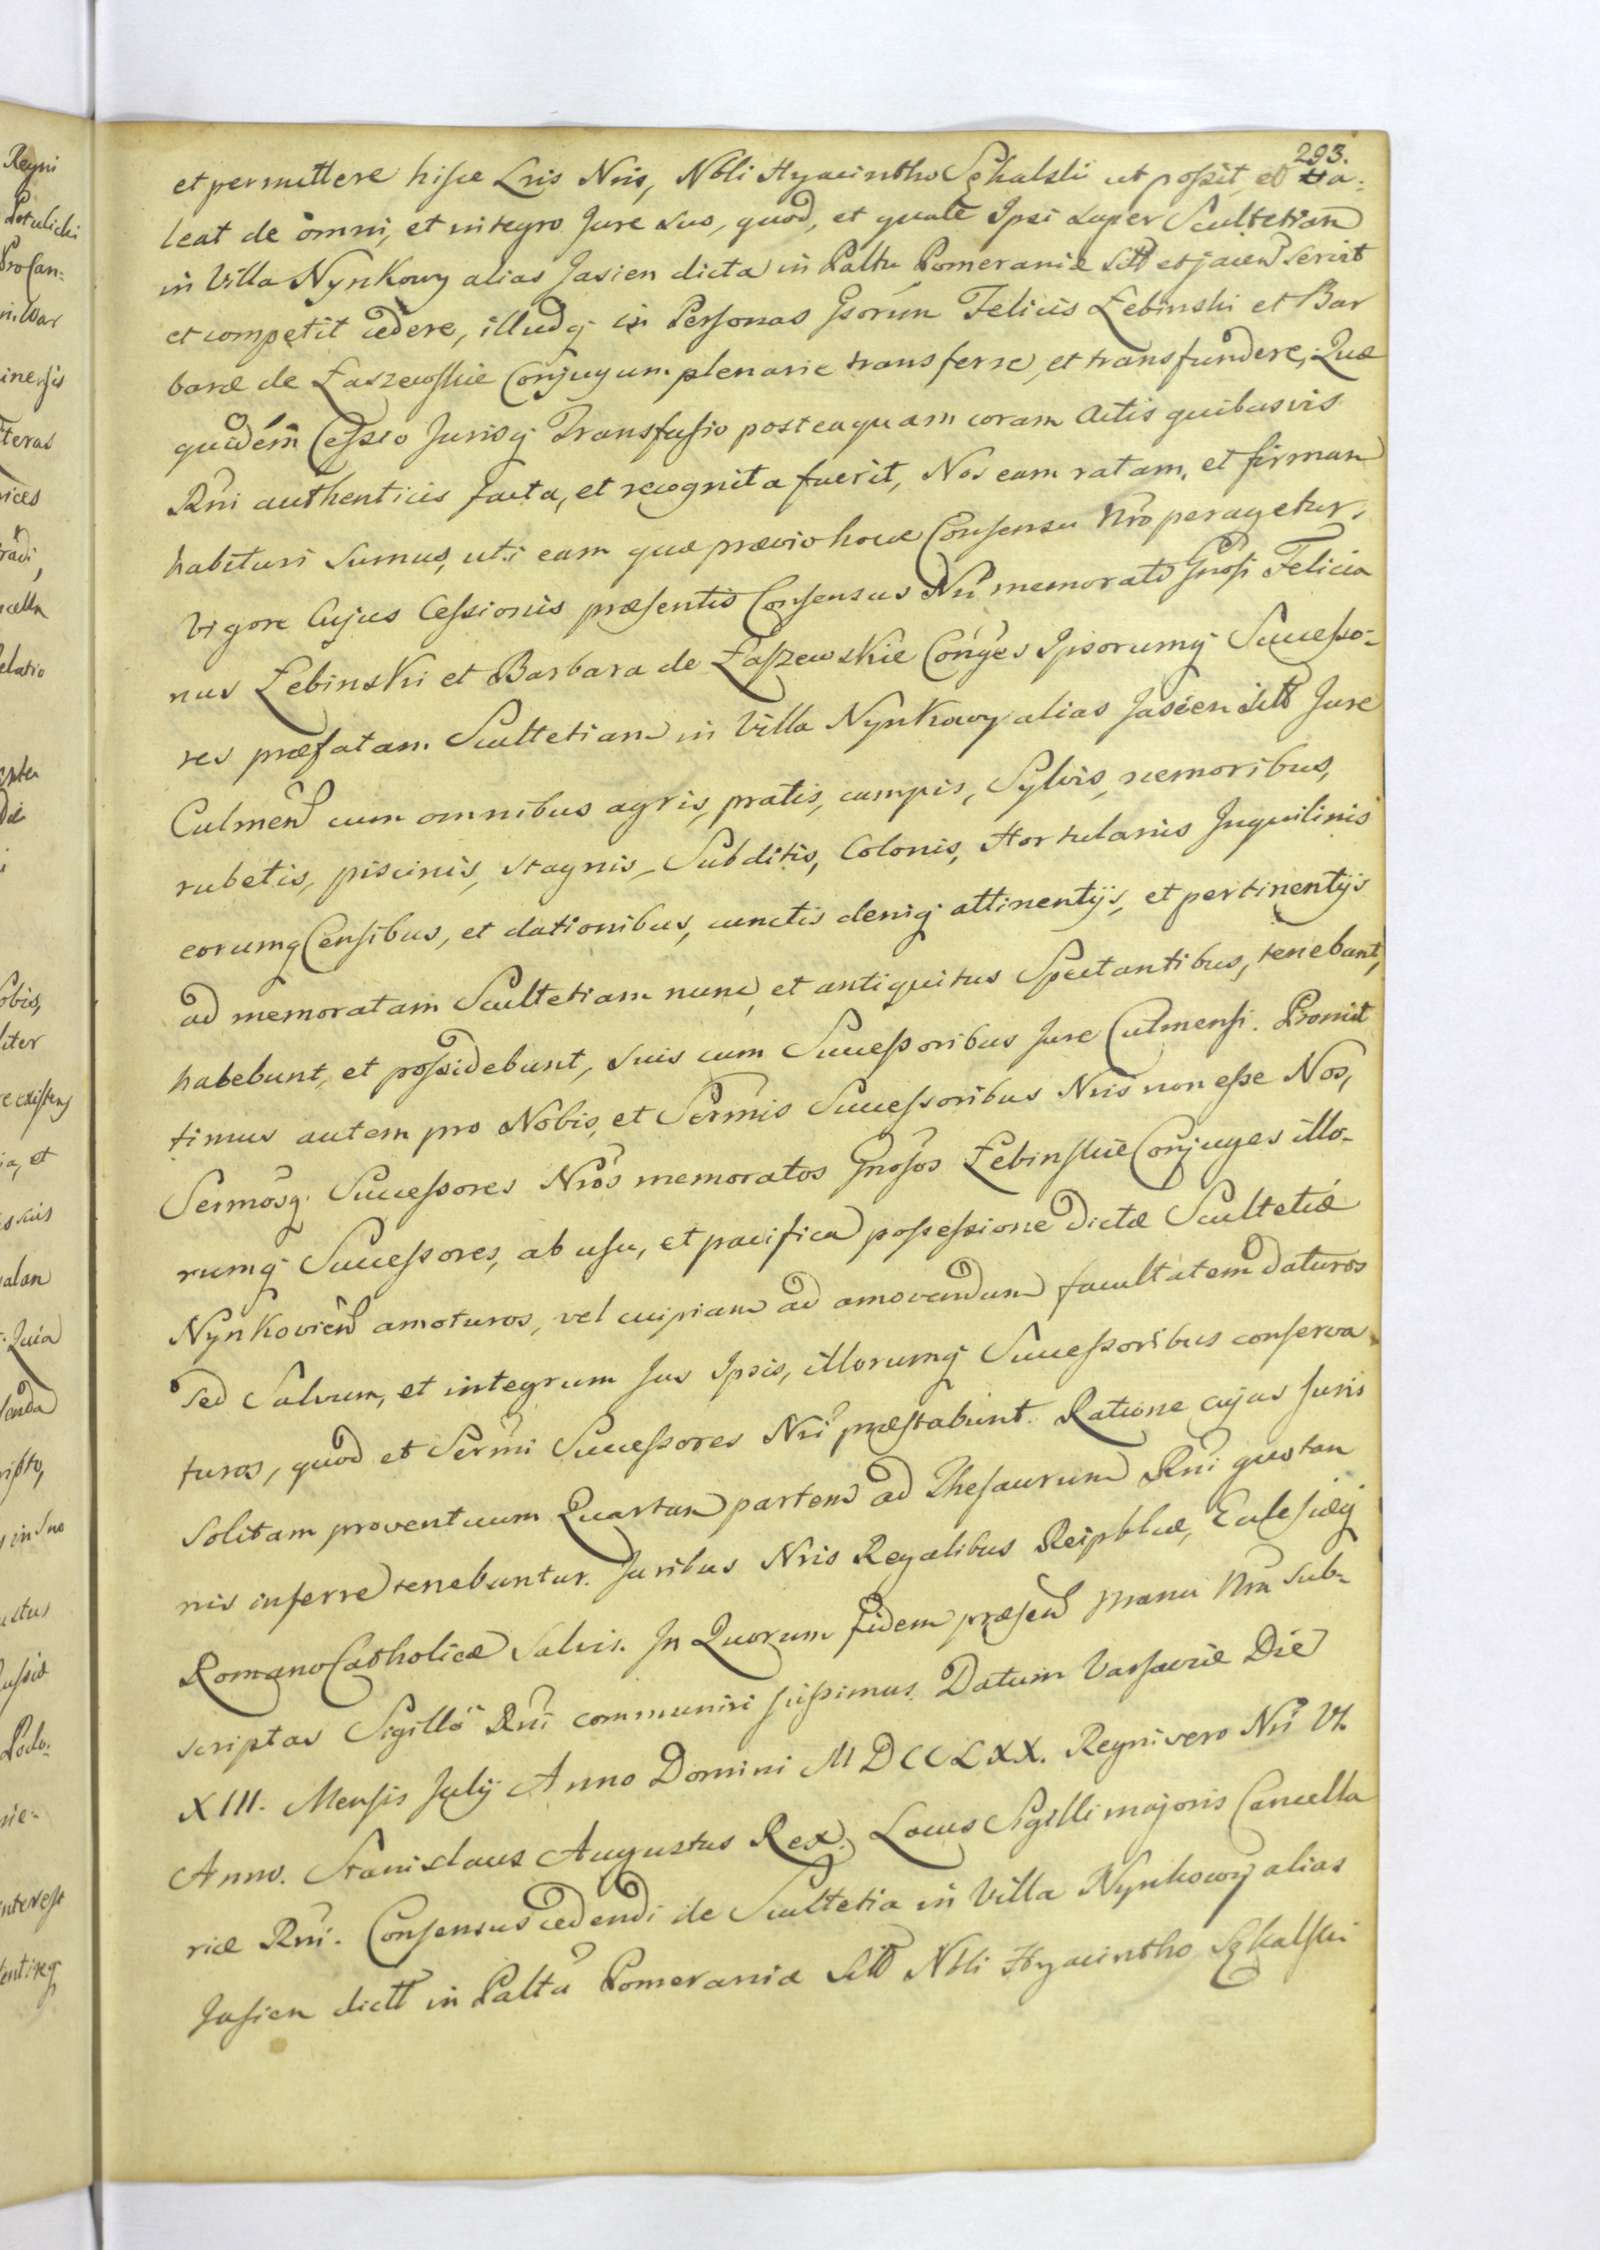 293.
et permittere hisce Lris Nris, Nbli Hyacintho Sękalski ut possit, et Va-
leat de omni, et integro Jure suo, quod, et quale Ipsi super Scultetiam
in Villa Nynkowy alias Jasien dicta in Palttu Pomeraniæ sitt et jacen servit
et competit cedere, illudq in Personas Gsorum Felicis Łebinski et Bar
baræ de Łaszewskie Conjugum plenarie transferre, et transfundere, Quæ
quidem Cessio Jurisq Transfusio posteaquam coram Actis quibusvis
Rni authenticis facta, et recognita fuerit, Nos eam ratam, et firmam
habituri sumus, uti eam quæ prævio hocce Consensu Nro peragetur.
Vigore Cujus Cessionis præsentis Consensus Nri memorati Gnosi Felicia
nus Łebinski et Barbara de Łaszewskie Conges Ipsorumq Successo-
res præfatam Scultetiam in Villa Nynkowy alias Jasien sitt Jure
Culmen cum omnibus agris, pratis, campis, Sylvis, nemoribus,
rubetis, piscinis, stagnis, Subditis, Colonis, Hortulanis Inquilinis
eorumq Censibus, et dationibus, cunctis deniq attinentijs, et pertinentijs
ad memoratam Scultetiam nunc, et antiquitus Spectantibus, tenebunt,
habebunt, et possidebunt, suis cum Successoribus Jure Culmensi. Promit
timus autem pro Nobis, et Sermis Successoribus Nris non esse Nos,
Sermosq. Successores Nros memoratos Gnosos Łebinskie Conjuges illo-
rumq Successores, ab usu, et pacifica possessione dictæ Scultetiæ
Nynkovien amoturos, vel cuipiam ad amovendum facultatem daturos
Sed Salvum, et integrum Jus Ipsis, illorumq Successoribus conserva
turos, quod et Sermi Successores Nri præstabunt. Ratione cujus Juris
solitam proventuum Quartam partem ad Thesaurum Rni quotan
nis inferre tenebuntur. Juribus Nris Regalibus Reipblicæ, Ecclesiæq
Romano Catholicæ Salvis. In Quorum fidem præsen Manu Nra sub-
scriptas Sigillo Rni communiri jussimus. Datum Varsaviæ Die
XIII. Mensis Julij Anno Domini MDCCLXX. Regni vero Nri VI.
Anno. Stanislaus Augustus Rex. Locus Sigilli majoris Cancella
riæ Rni. Consensus cedendi de Scultetia in Villa Nynkowy alias
Jasien dictt in Palttu Pomeraniæ sitt Nbli Hyacintho Sękalski